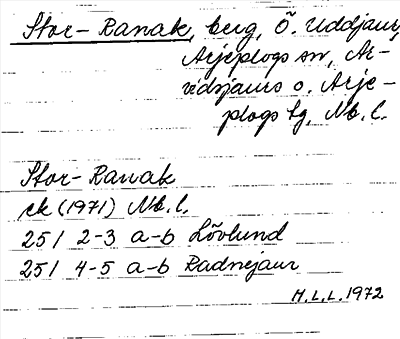 Stor-Ranak, berg, Ö. Uddjaur,
Arjeplogs sn, Ar-
vidsjaurs o. Arje-
plogs tg, Nb. l.
Stor-Ranak
ek (1971) Nb. l.
251 2-3 a-b Lövlund
251 4-5 a-b Radnejaur
H.L.L. 1972